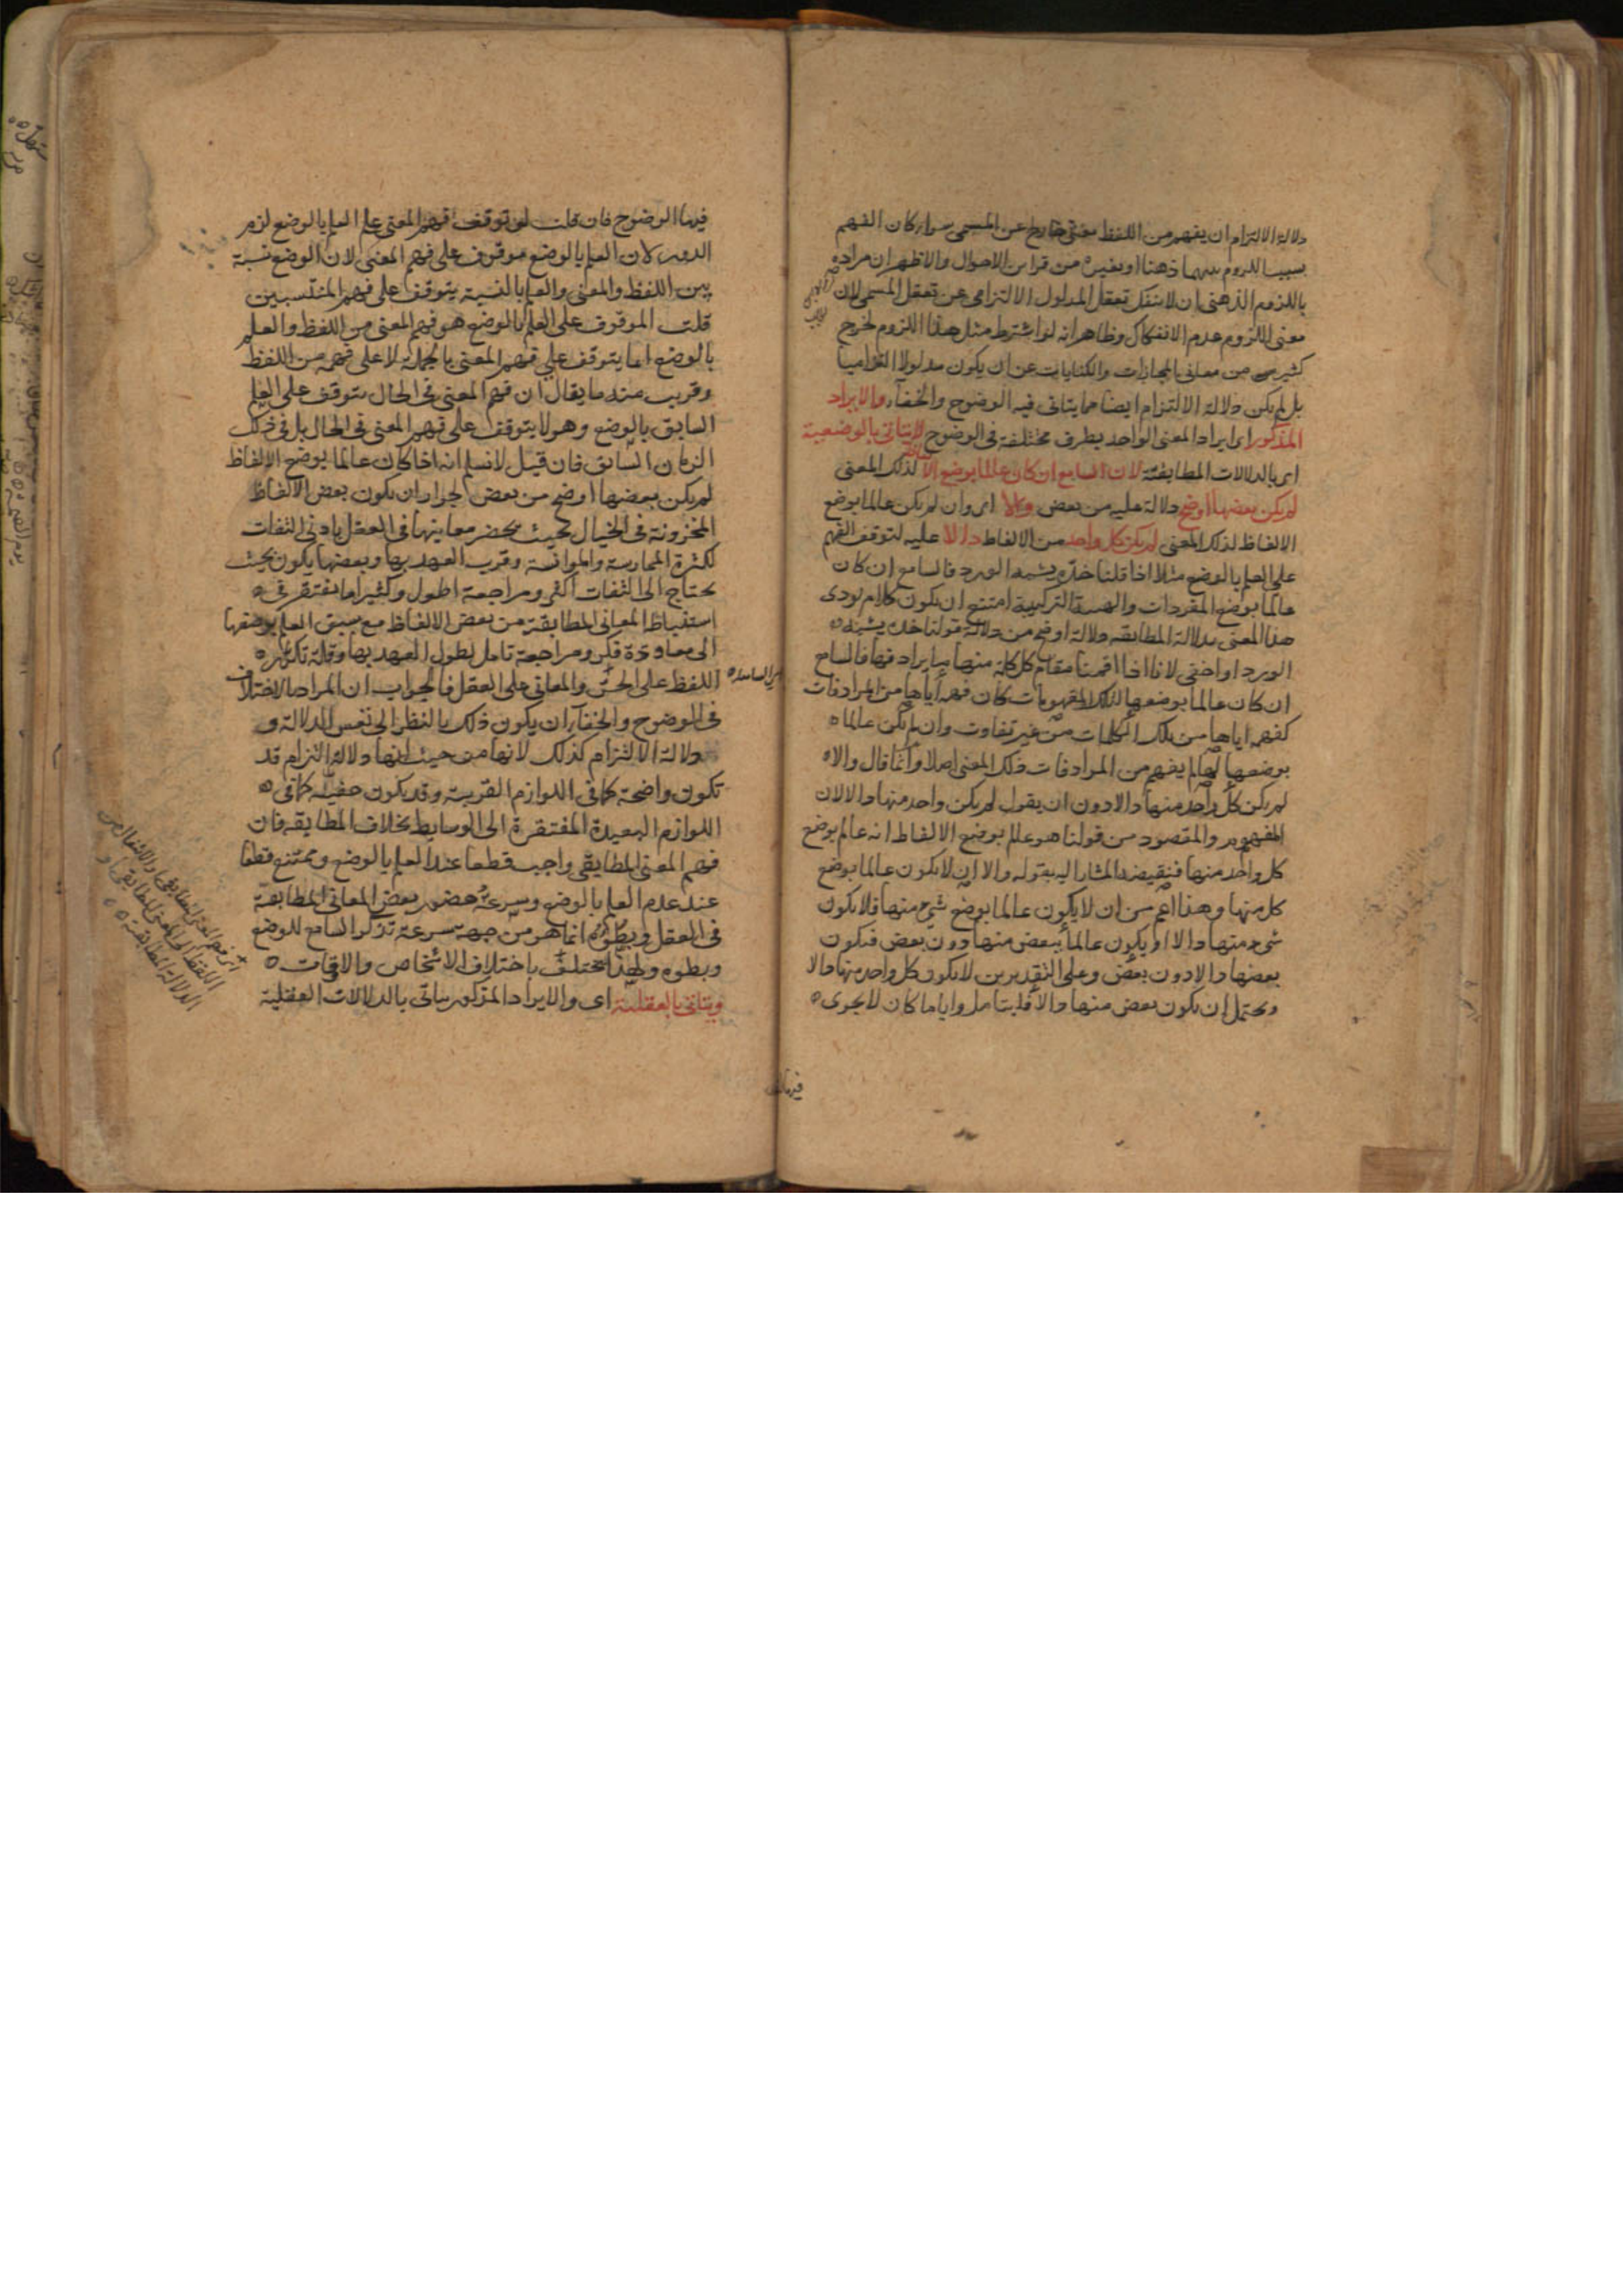 دلالة الالتزام ان يفهم من اللفظ معنى خارج عن المسمى سواء كان الفهم
بسبب اللزوم بينهما ذهنا او بغيره من قراين الاحوال والاظهر ان مراده
باللزوم الذهنى ان لا ينفك تعقل المدلول الالتزامى عن تعقل المسمى لان
معنى اللزوم عدم الانفكاك وظاهر انه لو اشترط مثل هذا اللزوم لخرج
كثير من معانى المجازات والكنايات عن ان يكون مدلولا التزاميا
بل لم يكن دلالة الالتزام ايضا مما يتاتى فيه الوضوح والخفآء والايراد
المذكور اى ايراد المعنى الواحد بطرق مختلفة فى الوضوح لا يتاتى بالوضعية
اى بالدلالات المطابقة لان السامع ان كان عالما بوضع الالفاظ لذلك المعنى
لم يكن بعضها اوضح دلالة عليه من بعض والا اى وان لم يكن عالما بوضع
الالفاظ لذلك المعنى لم يكن كل واحد من الالفاظ دالا عليه لتوقف الفهم
على العلم بالوضع مثلا اذا قلنا خدّه يشبه الورد فالسامع ان كان
عالما بوضع المفردات والهيئة التركيبية امتنع ان يكون كلام يودى
هذا المعنى بدلالة المطابقه دلالة اوضح من دلالة قولنا خده يشبه
الورد او اخفى لانا اذا اقمنا مقام كل كلمة منها ما يرادفها فالسامع
ان كان عالما بوضعها لتلك المفهومات كان فهمه اياها من المرادفات
كفهمه اياها من تلك الكلمات من غير تفاوت وان لم يكن عالما
بوضعها لها لم يفهم من المرادفات ذلك المعنى اصلا وانما قال والا
لم يكن كل واحد منها دالا دون ان يقول لم يكن واحد منها دالا لان
المفهوم والمقصود من قولنا هو عالم بوضع الالفاظ انه عالم بوضع
كل واحد منها فنقيضه المشار اليه بقوله والا ان لا يكون عالما بوضع
كل منها وهذا اعم من ان لا يكون عالما بوضع شئ منها فلا يكون
شئ منها دالا او يكون عالما ببعض منها دون بعض فيكون
بعضها دالا دون بعض وعلى التقديرين لا يكون كل واحد منها دالا
ويحتمل ان يكون بعض منها دالا فليتامل واياما كان لا يجرى
فيها الوضوح فان قلت لو توقف فهم المعنى على العلم بالوضع لزم
الدور لان العلم بالوضع موقوف على فهم المعنى لان الوضع نسبة
بين اللفظ والمعنى والعلم بالنسبة يتوقف على فهم المنتسبين
قلت الموقوف على العلم بالوضع هو فهم المعنى من اللفظ والعلم
بالوضع انما يتوقف على فهم المعنى بالجملة لا على فهمه من اللفظ
وقريب منه ما يقال ان فهم المعنى فى الحال يتوقف على العلم
السابق بالوضع وهو لا يتوقف على فهم المعنى فى الحال بل فى ذلك
الزمان السابق فان قيل لا نسلم انه اذا كان عالما بوضع الالفاظ
لم يكن بعضها اوضح من بعض لجواز ان يكون بعض الالفاظ
المخزونة فى الخيال بحيث يحضر معاينها فى العقل بادنى التفات
لكثرة الممارسة والموانسة وقرب العهد بها وبعضها يكون بحيث
يحتاج الى التفات اكثر ومراجعة اطول وكثيرا ما نفتقر فى
استنباط المعانى المطابقة من بعض الالفاظ مع سبق العلم بوضعها
الى معاودة فكر ومراجعة تامل لطول العهد بها وقلة تكرر
اللفظ على الحس والمعانى على العقل فالجواب ان المراد بالاختلاف
فى الوضوح والخفآء ان يكون ذلك بالنظر الى نفس الدلالة و
دلالة الالتزام كذلك لانها من حيث انها دلالة التزام قد
تكون واضحة كما فى اللوازم القريبة وقد يكون خفية كما فى
اللوازم البعيدة المفتقرة الى الوسايط بخلاف المطابقه فان
فهم المعنى المطابقى واجب قطعا عند العلم بالوضع وممتنع قطعا
عند عدم العلم بالوضع وسرعة حضور بعض المعانى المطابقة
فى العقل وبطؤه انما هو من جهة سرعة تذكر السامع للوضع
وبطوه ولهذا يختلف باختلاف الاشخاص والاوقات
ويتاتى بالعقلية اى والايراد المذكور يتاتى بالدلالات العقلية